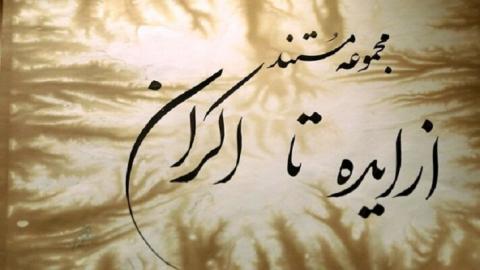 مجموعه مستند
از ایده تا اکران